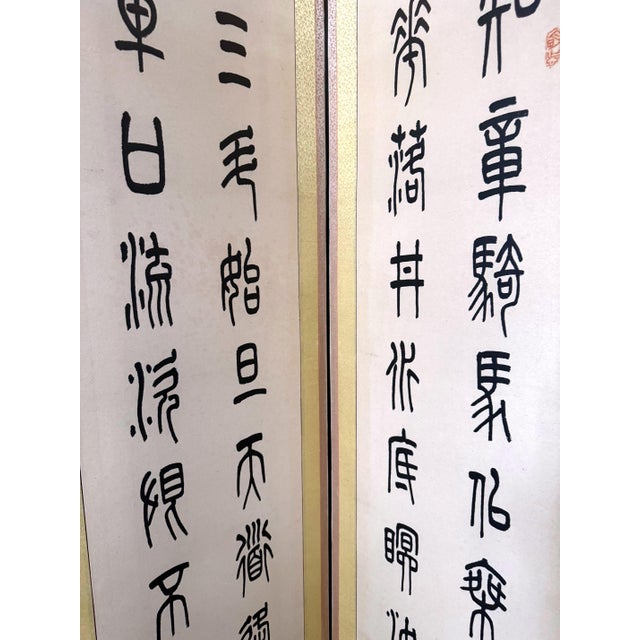 知章騎馬似乘
花落井水底眠汝
三斗始旦天道逢
車口流涎恨不